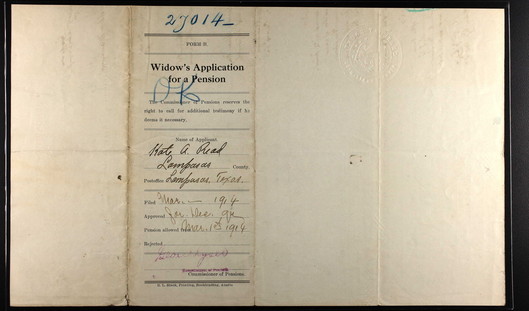 27014-
FORM B.
Widow's Application
for a Pension
OK
The Commissioner of Pensions reserves the
right to call for additional testimony if he
deems it necessary.
Name of Applicant
Kate A. Read
Lampasas County.
Postoffice Lampasas, Texas.
Filed Mar. 1914
Approved
Pension allowed from 1st 1914
Rejected
Commissioner of Pensions.